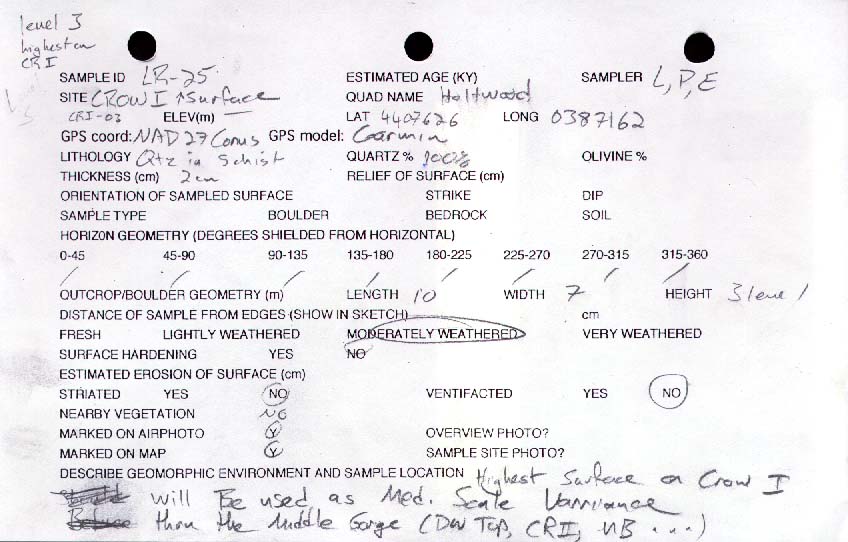 level 3
highest on
CRI
SAMPLE ID LR-25 ESTIMATED AGE (KY) SAMPLER L, P, E
SITE CROW I ↑Surface QUAD NAME Holtwood
CRI-03 ELEV(m) — LAT 4407626 LONG 0387162
GPS coord: NAD 27 Conus GPS model: Garmin
LITHOLOGY Qtz in Schist QUARTZ % 100% OLIVINE %
THICKNESS (cm) 2cm RELIEF OF SURFACE (cm)
ORIENTATION OF SAMPLED SURFACE STRIKE DIP
SAMPLE TYPE BOULDER BEDROCK SOIL
HORIZON GEOMETRY (DEGREES SHIELDED FROM HORIZONTAL)
0-45 45-90 90-135 135-180 180-225 225-270 270-315 315-360
/ / / / / / / /
OUTCROP/BOULDER GEOMETRY (m) LENGTH 10 WIDTH 7 HEIGHT 3 level
DISTANCE OF SAMPLE FROM EDGES (SHOW IN SKETCH) cm
FRESH LIGHTLY WEATHERED MODERATELY WEATHERED VERY WEATHERED
SURFACE HARDENING YES NO
ESTIMATED EROSION OF SURFACE (cm)
STRIATED YES NO VENTIFACTED YES NO
NEARBY VEGETATION NO
MARKED ON AIRPHOTO Y OVERVIEW PHOTO?
MARKED ON MAP Y SAMPLE SITE PHOTO?
DESCRIBE GEOMORPHIC ENVIRONMENT AND SAMPLE LOCATION Highest Surface on Crow I
will Be used as Med. Scale Varriance
than the Middle Gorge (DW Top, CRI, UB ...)